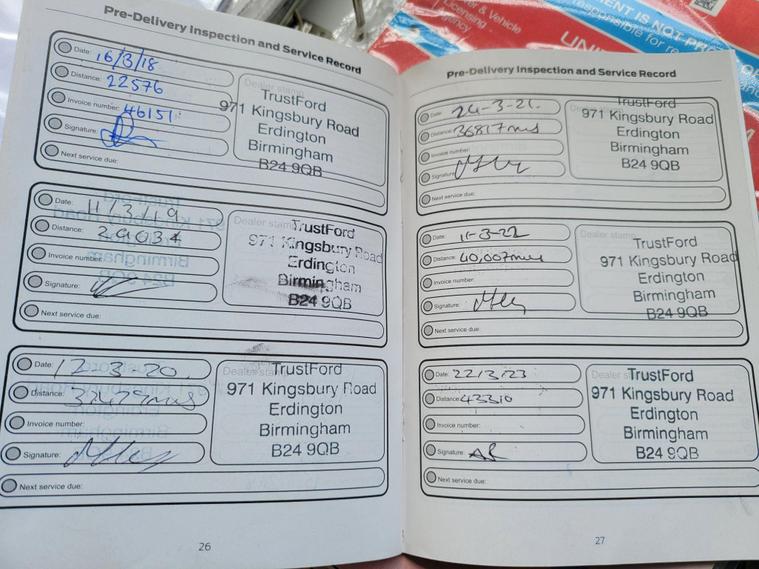 Pre-Delivery Inspection and Service Record
Date: 16/3/18
Distance: 22576
Invoice number: 46151
Signature:
Next service due:
Dealer stamp
TrustFord
971 Kingsbury Road
Erdington
Birmingham
B24 9QB
Date: 11/3/19
Distance: 29034
Invoice number:
Signature:
Next service due:
Dealer stamp
TrustFord
971 Kingsbury Road
Erdington
Birmingham
B24 9QB
Date: 12-3-20.
Distance: 32479mls
Invoice number:
Signature:
Next service due:
Dealer stamp
TrustFord
971 Kingsbury Road
Erdington
Birmingham
B24 9QB
26
Pre-Delivery Inspection and Service Record
Date: 24-3-21.
Distance: 36817mls
Invoice number:
Signature:
Next service due:
TrustFord
971 Kingsbury Road
Erdington
Birmingham
B24 9QB
Date: 11-3-22
Distance: 40,007mls
Invoice number:
Signature:
Next service due:
Dealer stamp
TrustFord
971 Kingsbury Road
Erdington
Birmingham
B24 9QB
Date: 22/3/23
Distance: 43310
Invoice number:
Signature: AR
Next service due:
Dealer
TrustFord
971 Kingsbury Road
Erdington
Birmingham
B24 9QB
27
& Vehicle
Licensing
Agency
responsible for